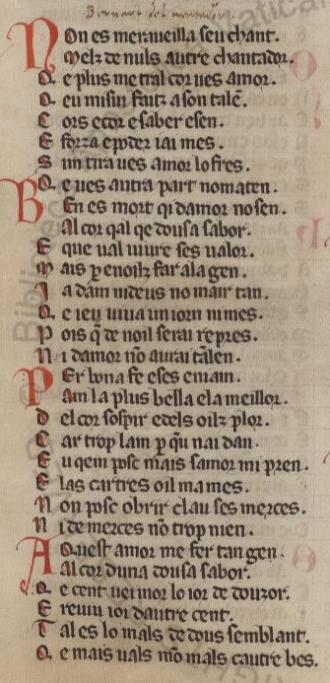 Bernart del ventador.
Non es meraveilla seu chant.
Melz de nuls autre chantador.
Q e plus me tral cor ves amor.
Q eu misiu faitz a son talē.
C ors e cor e saber e sen.
E forza e poder iai mes.
S im tira ves amor lo fres.
Q e ves autra part nomaten.
Ben es mort qi damor no sen.
Al cor qal qe dousa sabor.
E que val viure ses valor.
M ais p enoilz far ala gen.
I a dam nideus no mair tan.
Q e ieu viua un iorn ni mes.
P ois q̄ de noil serai repres.
N i damor nō aurai tālen.
Per bona fe e ses eniain.
Am la plus bella e la meillor.
D el cor sospir e dels oilz plor.
C ar trop lam p qū nai dan.
E u qem posc mais samor mi pren.
E las cartres oil ma mes.
N on posc obrir clau ses merces.
N i de merces nō trop nien.
Aquest amor me fer tan gen.
Al cor duna dousa sabor.
Q e cent vei mor lo ior de douzor.
E reviu ioi dautre cent.
T al es lo mals de dous semblant.
Q e mais vals mō mals cautre bes.